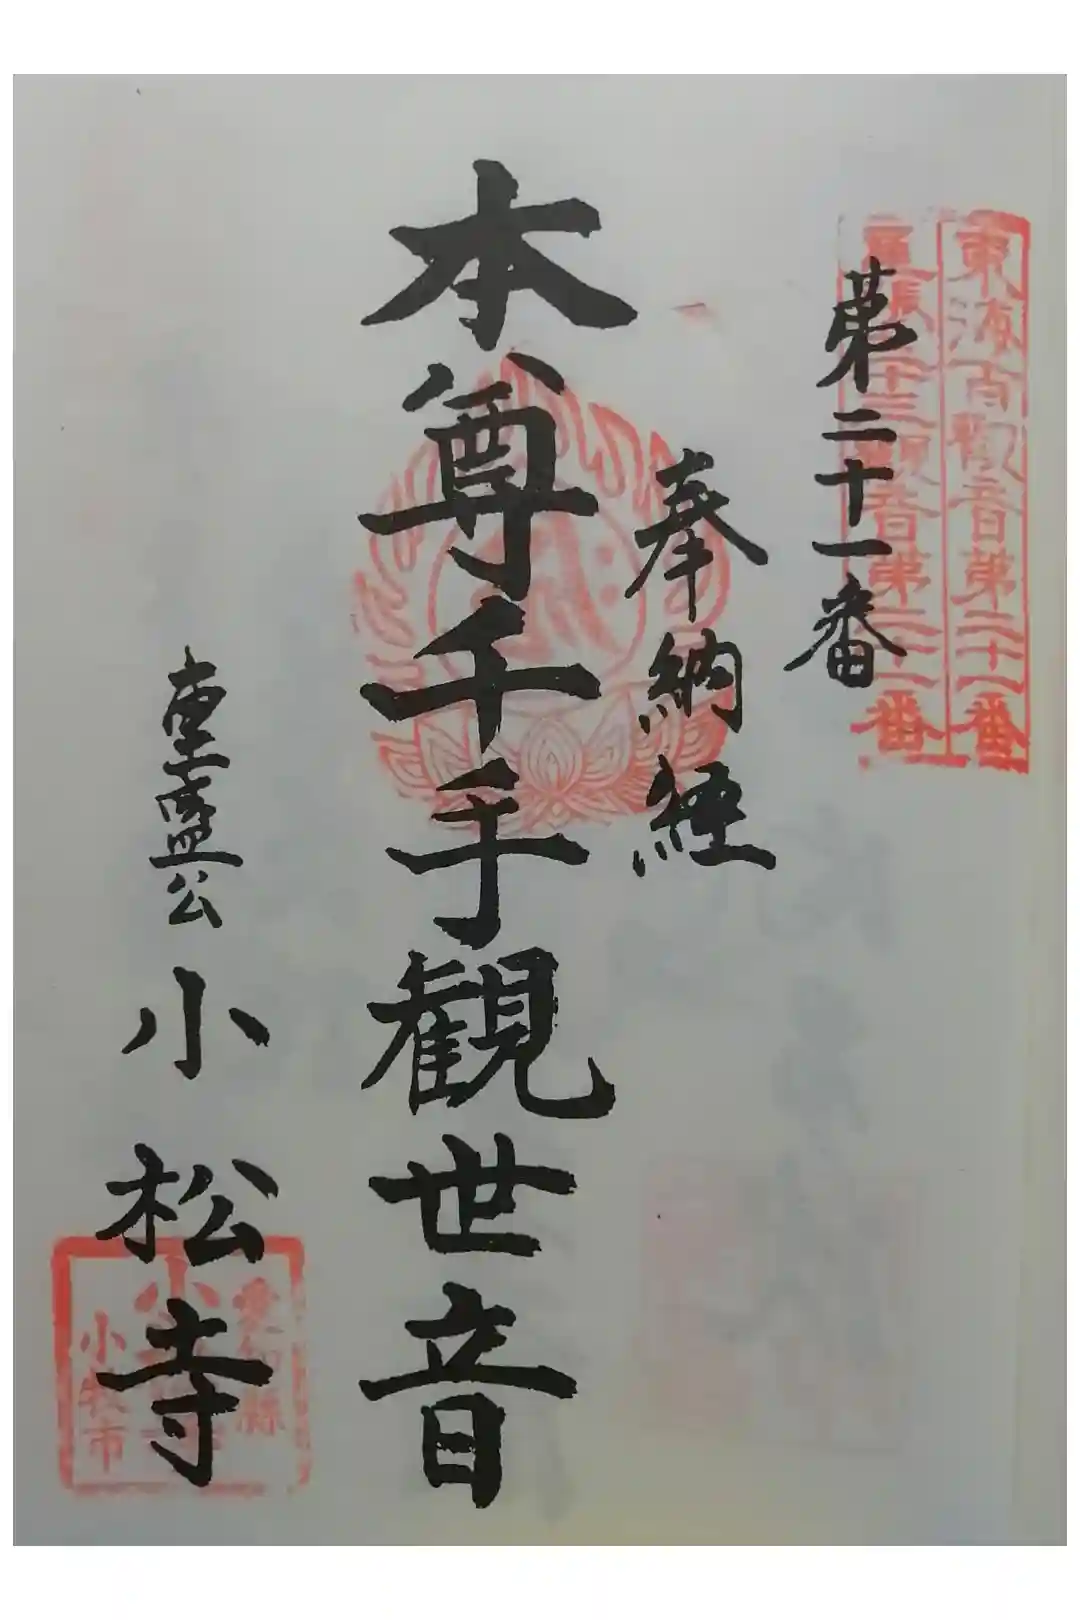 東海百観音第二十一番
尾張三十三観音第二十一番
第二十一番
奉納経
本尊千手観世音
重盛公
小松寺
愛知縣
小牧市